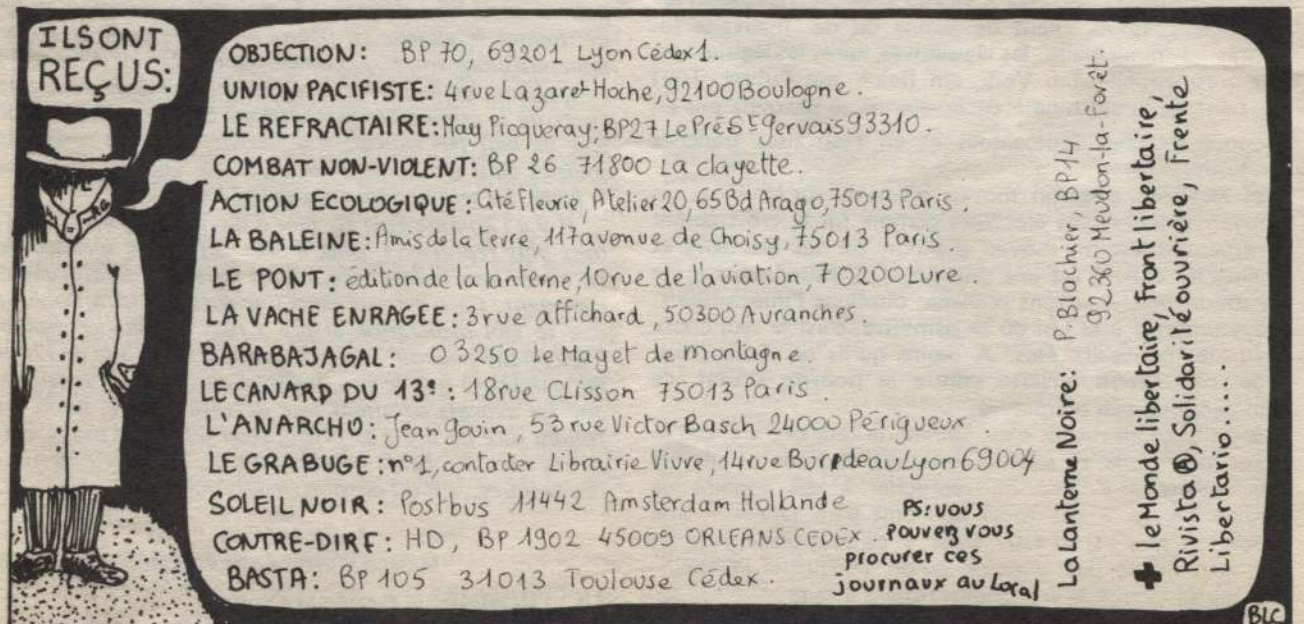 ILSONT
REÇUS:
OBJECTION: BP 70, 69201 Lyon Cédex1.
UNION PACIFISTE: 4 rue Lazare Hoche, 92100 Boulogne.
LE REFRACTAIRE: May Picqueray; BP27 Le Pré St gervais 93310.
COMBAT NON-VIOLENT: BP 26 71800 La clayette.
ACTION ECOLOGIQUE: Cité Fleurie, Atelier 20, 65 Bd Arago, 75013 Paris.
LA BALEINE: Amis de la terre, 117 avenue de Choisy, 75013 Paris.
LE PONT: édition de la lanterne, 10 rue de l'aviation, 70200 Lure.
LA VACHE ENRAGEE: 3 rue affichard, 50300 Avranches.
BARABAJAGAL: 03250 le Mayet de montagne.
LE CANARD DU 13e: 18 rue Clisson 75013 Paris.
L'ANARCHO: Jean Gouin, 53 rue Victor Basch 24000 Périgueux.
LE GRABUGE: n°1, contacter Librairie Vivre, 14 rue Burdeau Lyon 69004
SOLEIL NOIR: Postbus 11442 Amsterdam Hollande
CONTRE-DIRE: HD, BP 1902 45009 ORLEANS CEDEX.
BASTA: BP 105 31013 Toulouse Cédex.
PS: vous
pouvez vous
procurer ces
journaux au Local
La Lanterne Noire: P. Blachier, BP14
92360 Meudon-la-Forêt.
+ le Monde libertaire, Front libertaire,
Rivista Ⓐ, Solidarité ouvrière, Frente
Libertario.....
BLC